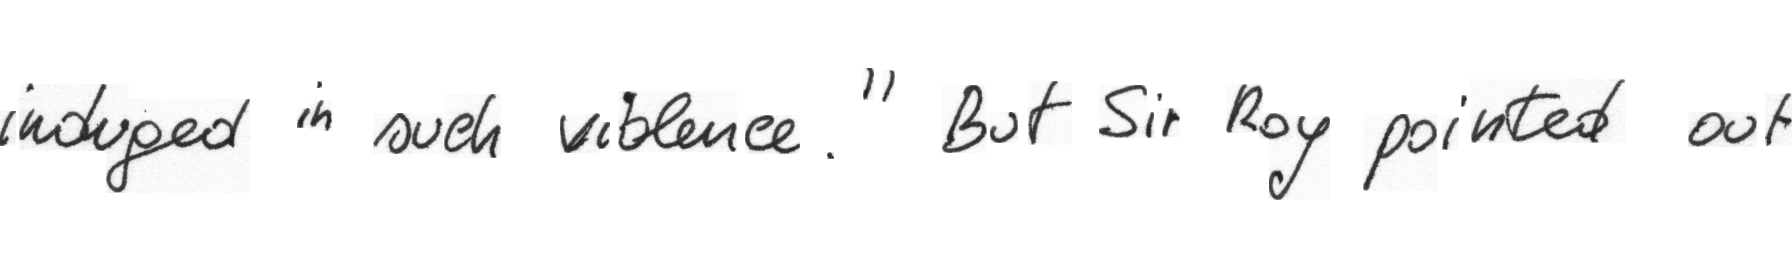 induged in such violence." But Sir Roy pointed out